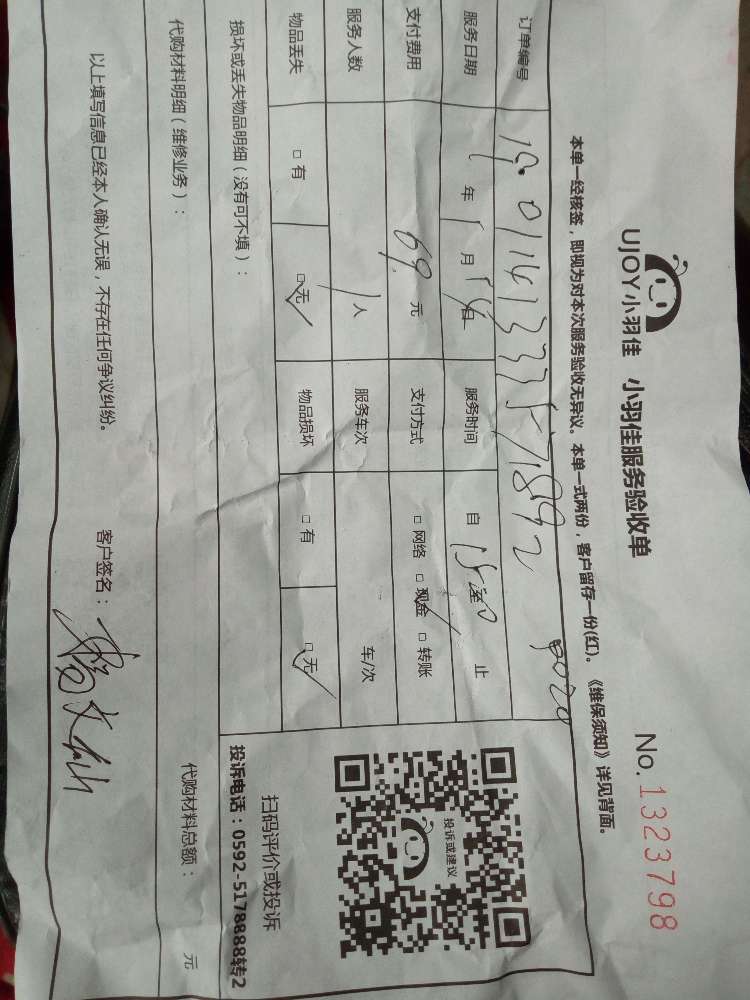 UJOY小羽佳 小羽佳服务验收单 No. 1323798
本单一经核签，即视为对本次服务验收无异议。本单一式两份，客户留存一份(红)。《维保须知》详见背面。
订单编号
服务日期 年 1 月 14 日 服务时间 自 至 止
支付费用 69 元 支付方式 □ 网络 □ 现金 □ 转账
服务人数 1 人 服务车次 车/次
物品丢失 □ 有 □ 无 物品损坏 □ 有 □ 无
投诉或建议
扫码评价或投诉
投诉电话：0592-5178888转2
损坏或丢失物品明细（没有可不填）：
代购材料明细（维修业务）： 代购材料总额： 元
以上填写信息已经本人确认无误，不存在任何争议纠纷。 客户签名：